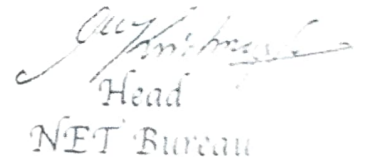 Head
NET Bureau